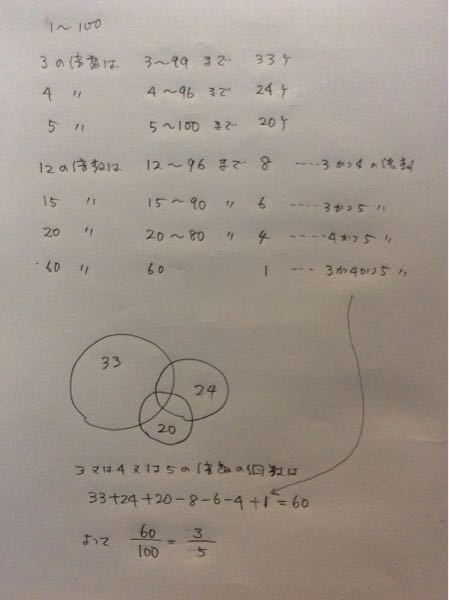 1～100
3の倍数は 3～99 まで 33ケ
4 〃 4～96 まで 24ケ
5 〃 5～100 まで 20ケ
12の倍数は 12～96 まで 8 ････3かつ4の倍数
15 〃 15～90 〃 6 ････3かつ5 〃
20 〃 20～80 〃 4 ････4かつ5 〃
60 〃 60 1 ････3かつ4かつ5 〃
33
24
20
3又は4又は5の倍数の個数は
33+24+20-8-6-4+1=60
よって 60/100 = 3/5